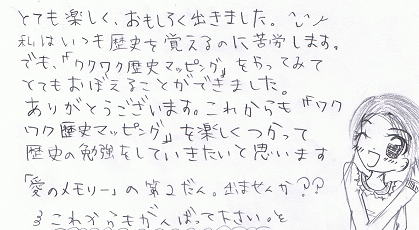 とても楽しく、おもしろく出きました。
私はいつも歴史を覚えるのに苦労します。
でも、『ワクワク歴史マッピング』をやってみて
とてもおぼえることができました。
ありがとうございます。これからも『ワク
ワク歴史マッピング』を楽しくつかって
歴史の勉強をしていきたいと思います
「愛のメモリー」の第2だん。出ませんか??
これからもがんばって下さい。